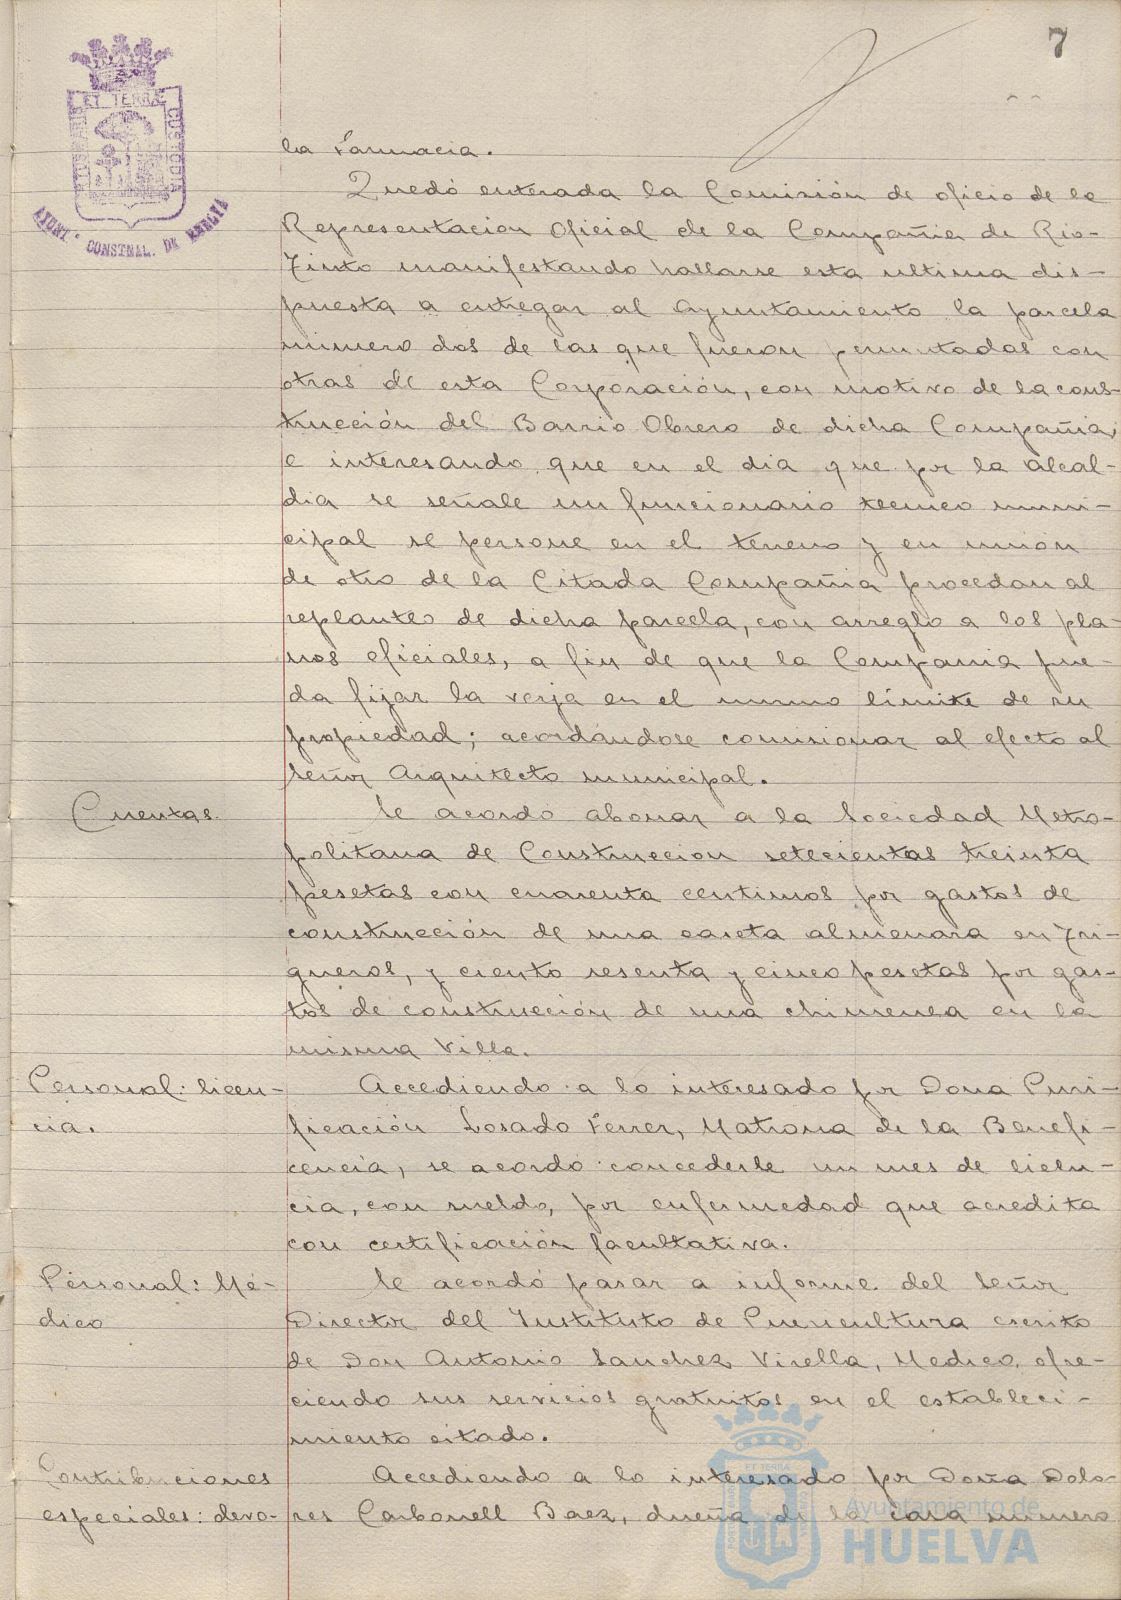 7
ET TERRÆ
CUSTODIA
AYUNT. CONSTNAL. DE HUELVA
la Farmacia.
Quedó enterada la Comisión de oficio de la
Representación Oficial de la Compañia de Rio-
Tinto manifestando hallarse esta ultima dis-
puesta a entregar al Ayuntamiento la parcela
número dos de las que fueron permutadas con
otras de esta Corporación, con motivo de la cons-
trucción del Barrio Obrero de dicha Compañia,
e interesando que en el dia que por la alcal-
dia se señale un funcionario tecnico muni-
cipal se persone en el terreno y en unión
de otro de la Citada Compañia procedan al
replanteo de dicha parcela, con arreglo a los pla-
nos oficiales, a fin de que la Compania pue-
da fijar la verja en el mismo límite de su
propiedad; acordándose comisionar al efecto al
Señor Arquitecto municipal.
Cuentas.
Se acordó abonar a la Sociedad Metro-
politana de Construccion setecientas treinta
pesetas con cuarenta centimos por gastos de
construcción de una caseta almenara en Tri-
gueros, y ciento sesenta y cinco pesetas por gas-
tos de construcción de una chimenea en la
misma Villa.
Personal: licen-
cia.
Accediendo a lo interesado por Dona Puri-
ficación Losado Ferrer, Matrona de la Benefi-
cencia, se acordó concederle un mes de licen-
cia, con sueldo, por enfermedad que acredita
con certificación facultativa.
Personal: Mé-
dico
Se acordó pasar a informe del Señor
Director del Instituto de Puericultura escrito
de Don Antonio Sanchez Virella, Medico, ofre-
ciendo sus servicios gratuitos en el estableci-
miento citado.
Contribuciones
especiales: devo-
Accediendo a lo interesado por Doña Dolo-
res Carbonell Baez, dueña de la casa número
Ayuntamiento de
HUELVA